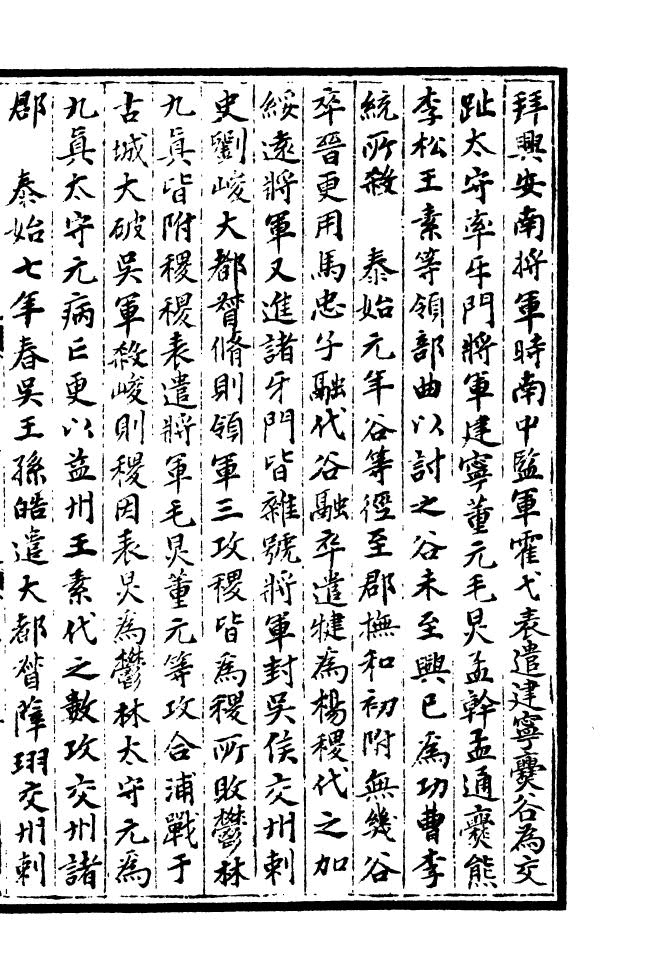 拜興安南將軍時南中監軍霍弋表遣建寧爨谷為交
趾太守率牙門將軍建寧董元毛炅孟幹孟通爨熊
李松王素等領部曲以討之谷未至興已為功曹李
統所殺　泰始元年谷等徑至郡撫和初附無幾谷
卒晉更用馬忠子融代谷融卒遣犍為楊稷代之加
綏遠將軍又進諸牙門皆雜號將軍封吳侯交州刺
史劉峻大都督脩則領軍三攻稷皆為稷所敗鬱林
九真皆附稷稷表遣將軍毛炅董元等攻合浦戰于
古城大破吳軍殺峻則稷因表炅為鬱林太守元為
九真太守元病亡更以益州王素代之數攻交州諸
郡　泰始七年春吳王孫皓遣大都督薛珝交州刺